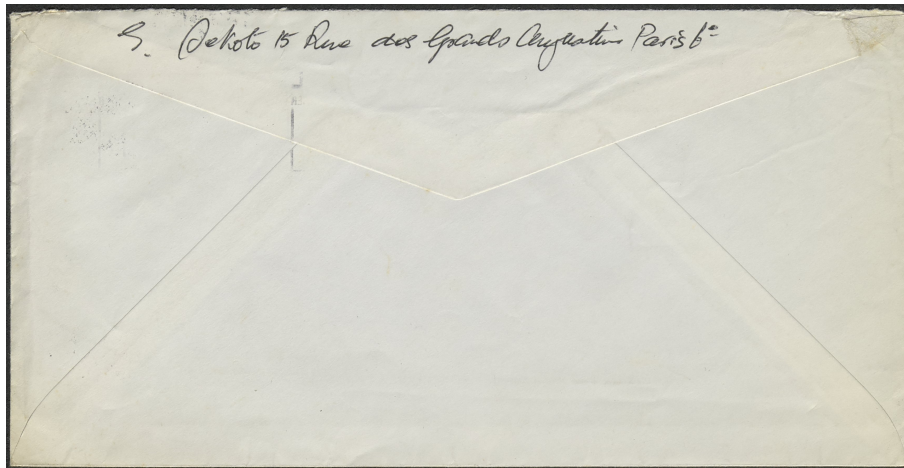 G. Sekoto 15 Rue des Grands Augustins Paris 6e